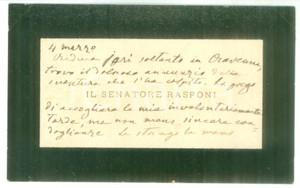 4 marzo
Reduce jeri soltanto in Ravenna,
trovo il doloroso annunzio della
sventura che l'ha colpito. La prego
IL SENATORE RASPONI
di accogliere le mie involontariamente
tarde, ma non meno sincere con-
doglianze. Le stringo la mano